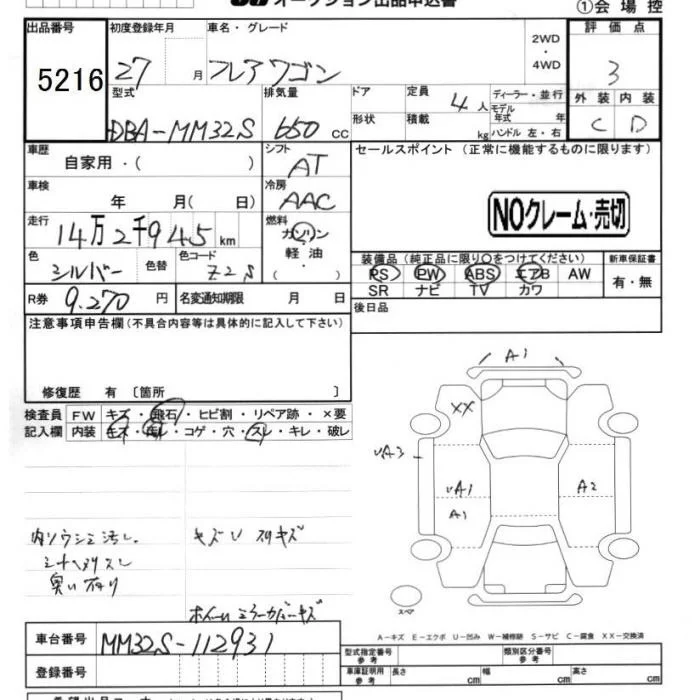 オークション出品申込書
①会場控
出品番号 初度登録年月 車名・グレード 2WD・4WD 評価点
5216 27 月 フレアワゴン 3
型式 排気量 ドア 定員 4人 ディーラー・並行 外装 内装
モデル年式 年
DBA-MM32S 650 cc 形状 積載 kg ハンドル 左・右 C D
車歴 シフト セールスポイント (正常に機能するものに限ります)
自家用・( ) AT
車検 冷房
年 月( 日) AAC
NOクレーム・売切
走行 燃料
14万2千945km ガソリン
軽油・( )
色 色替 色コード 装備品(純正品に限り○をつけてください) 新車保証書
シルバー Z2S PS PW ABS エアB AW 有・無
SR ナビ TV カワ
R券 9.270円 名変通知期限 月 日
後日品
注意事項申告欄(不具合内容等は具体的に記入して下さい)
修復歴 有 〔箇所 〕
検査員 FW キズ・飛石・ヒビ割・リペア跡・×要
記入欄 内装 キズ・汚レ・コゲ・穴・スレ・キレ・破レ
A1
XX
UA3
UA1
A1
A2
内ソウシミ汚し. キズU スリキズ
シートヘタリスレ
臭い有り
ホイールミラーカバーキズ
スペア
A-キズ E-エクボ U-凹み W-補修跡 S-サビ C-腐食 XX-交換済
車台番号 MM32S-112931
型式指定番号 参考 類別区分番号 参考
登録番号
車庫証明用 参考 長さ cm 幅 cm 高さ cm
希望出品コーナー